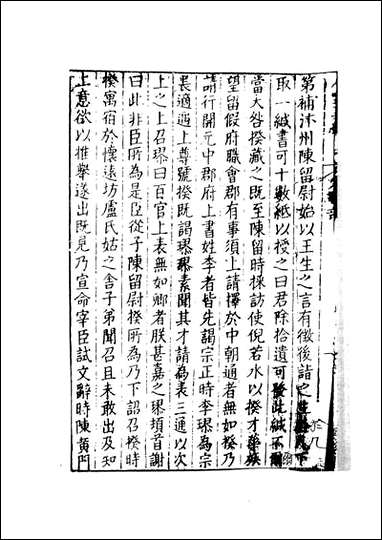 第補汴州陳留尉始以王生之言有徵後詣之
取一緘書可十數紙以授之曰君除拾遺可發此緘不爾
當大咎揆藏之既至陳留時採訪使倪若水以揆才華族
望留假府職會郡有事須上請擇於中朝通者無如揆乃
請行開元中郡府上書姓李者皆先謁宗正時李璆為宗
長適遇上尊號揆既謁璆璆素聞其才請為表三通以次
上之上召璆曰百官上表無如卿者朕甚嘉之璆頓首謝
曰此非臣所為是臣從子陳留尉揆所為乃下詔召揆時
揆寓宿於懷遠坊盧氏姑之舍子弟聞召且未敢出及知
上意欲以推舉遂出既見乃宣命宰臣試文辭時陳黃門